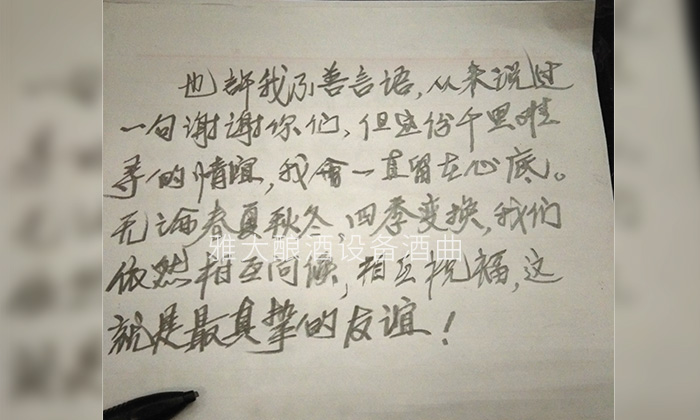 也许我不善言语，从来说过
一句谢谢你们，但这份千里难
寻的情谊，我会一直留在心底。
无论春夏秋冬，四季变换，我们
依然相互问候，相互祝福，这
就是最真挚的友谊！
雅大酿酒设备酒曲